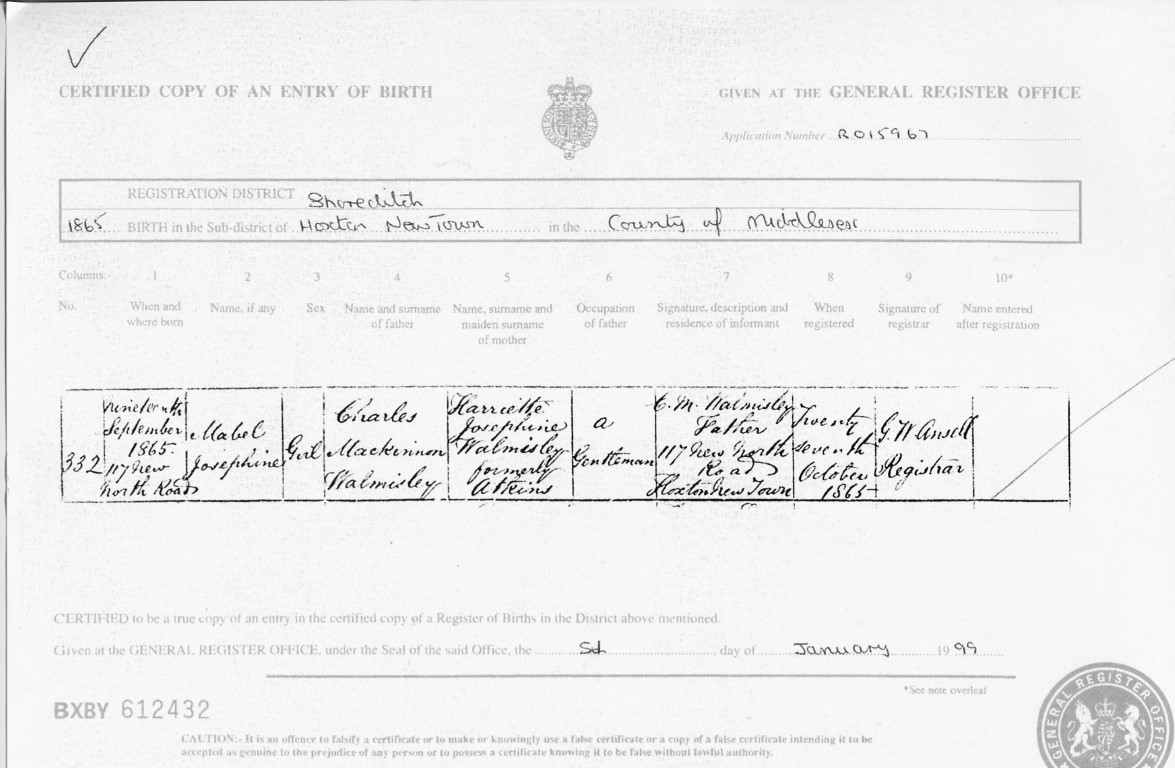 CERTIFIED COPY OF AN ENTRY OF BIRTH
GIVEN AT THE GENERAL REGISTER OFFICE
Application Number R015967
REGISTRATION DISTRICT Shoreditch
1865 BIRTH in the Sub-district of Hoxton New Town in the County of Middlesex
Columns:- 1 2 3 4 5 6 7 8 9 10*
No.
When and
where born
Name, if any
Sex
Name and surname
of father
Name, surname and
maiden surname
of mother
Occupation
of father
Signature, description and
residence of informant
When
registered
Signature of
registrar
Name entered
after registration
332
nineteenth
September
1865.
117 New
North Road
Mabel
Josephine
Girl
Charles
Mackinnon
Walmisley
Harriette
Josephine
Walmisley
formerly
Atkins
a
Gentleman
C. M. Walmisley
Father
117 New North
Road
Hoxton New Town
Twenty
seventh
October
1865
G. W. Ansell
Registrar
CERTIFIED to be a true copy of an entry in the certified copy of a Register of Births in the District above mentioned.
Given at the GENERAL REGISTER OFFICE, under the Seal of the said Office, the day of January 1999
*See note overleaf
BXBY 612432
CAUTION:- It is an offence to falsify a certificate or to make or knowingly use a false certificate or a copy of a false certificate intending it to be
accepted as genuine to the prejudice of any person or to possess a certificate knowing it to be false without lawful authority.
GENERAL REGISTER OFFICE